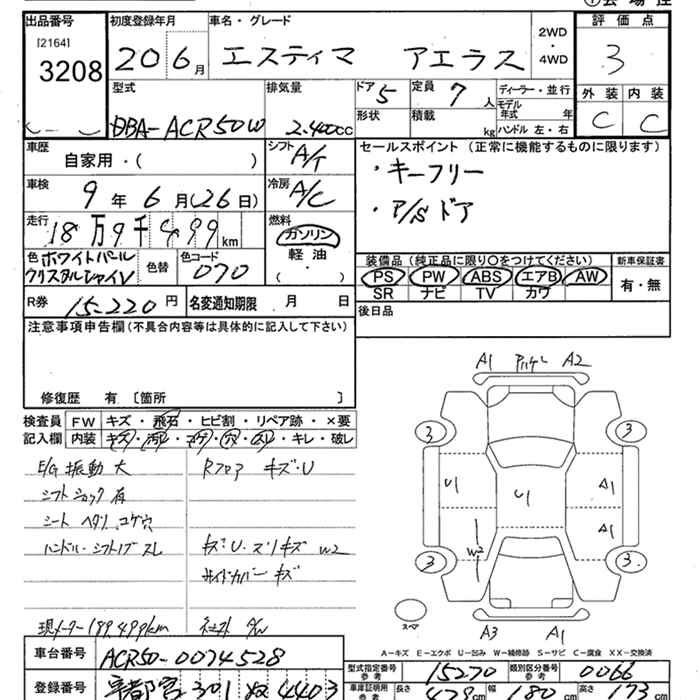 出品番号 初度登録年月 車名・グレード 評価点
[2164]
3208
20 6月 エスティマ アエラス
2WD
・
4WD
3
型式 排気量 ドア 定員 ディーラー・並行 外装 内装
DBA-ACR50W 2.400cc 5 7人
モデル年式 年
C C
形状 積載 kg ハンドル 左・右
車歴 シフト セールスポイント (正常に機能するものに限ります)
自家用・( ) A/T
・キーフリー
車検 冷房
9年 6月(26日) A/C
・P/Sドア
走行 燃料
18万9千499km ガソリン
軽油
( ・ )
色 ホワイトパール 色替 色コード
クリスタルシャイン 070
装備品 (純正品に限り○をつけてください) 新車保証書
PS PW ABS エアB AW
SR ナビ TV カワ
有・無
R券 15.220円 名変通知期限 月 日
後日品
注意事項申告欄(不具合内容等は具体的に記入して下さい)
修復歴 有 〔箇所 〕
検査員 FW キズ・飛石・ヒビ割・リペア跡・×要
記入欄 内装 キズ・汚れ・コゲ・穴・スレ・キレ・破レ
E/G 振動 大 Rフロア キズ・U
シフトショック 有
シート ヘタリ コゲ穴
ハンドル・シフトノブ スレ キズ・U・スリキズ W2
サイドカバー キズ
現メーター189,499km
A1 A2
3 3
U1 U1 A1
W2 A1
3 3
スペア
A3 A1
A-キズ E-エクボ U-凹み W-補修跡 S-サビ C-腐食 XX-交換済
車台番号 ACR50-0074528
型式指定番号 参考 15270 類別区分番号 参考 0066
登録番号 宇都宮 301 ぬ 4403
車庫証明用 参考 長さ 478cm 幅 180cm 高さ 173cm